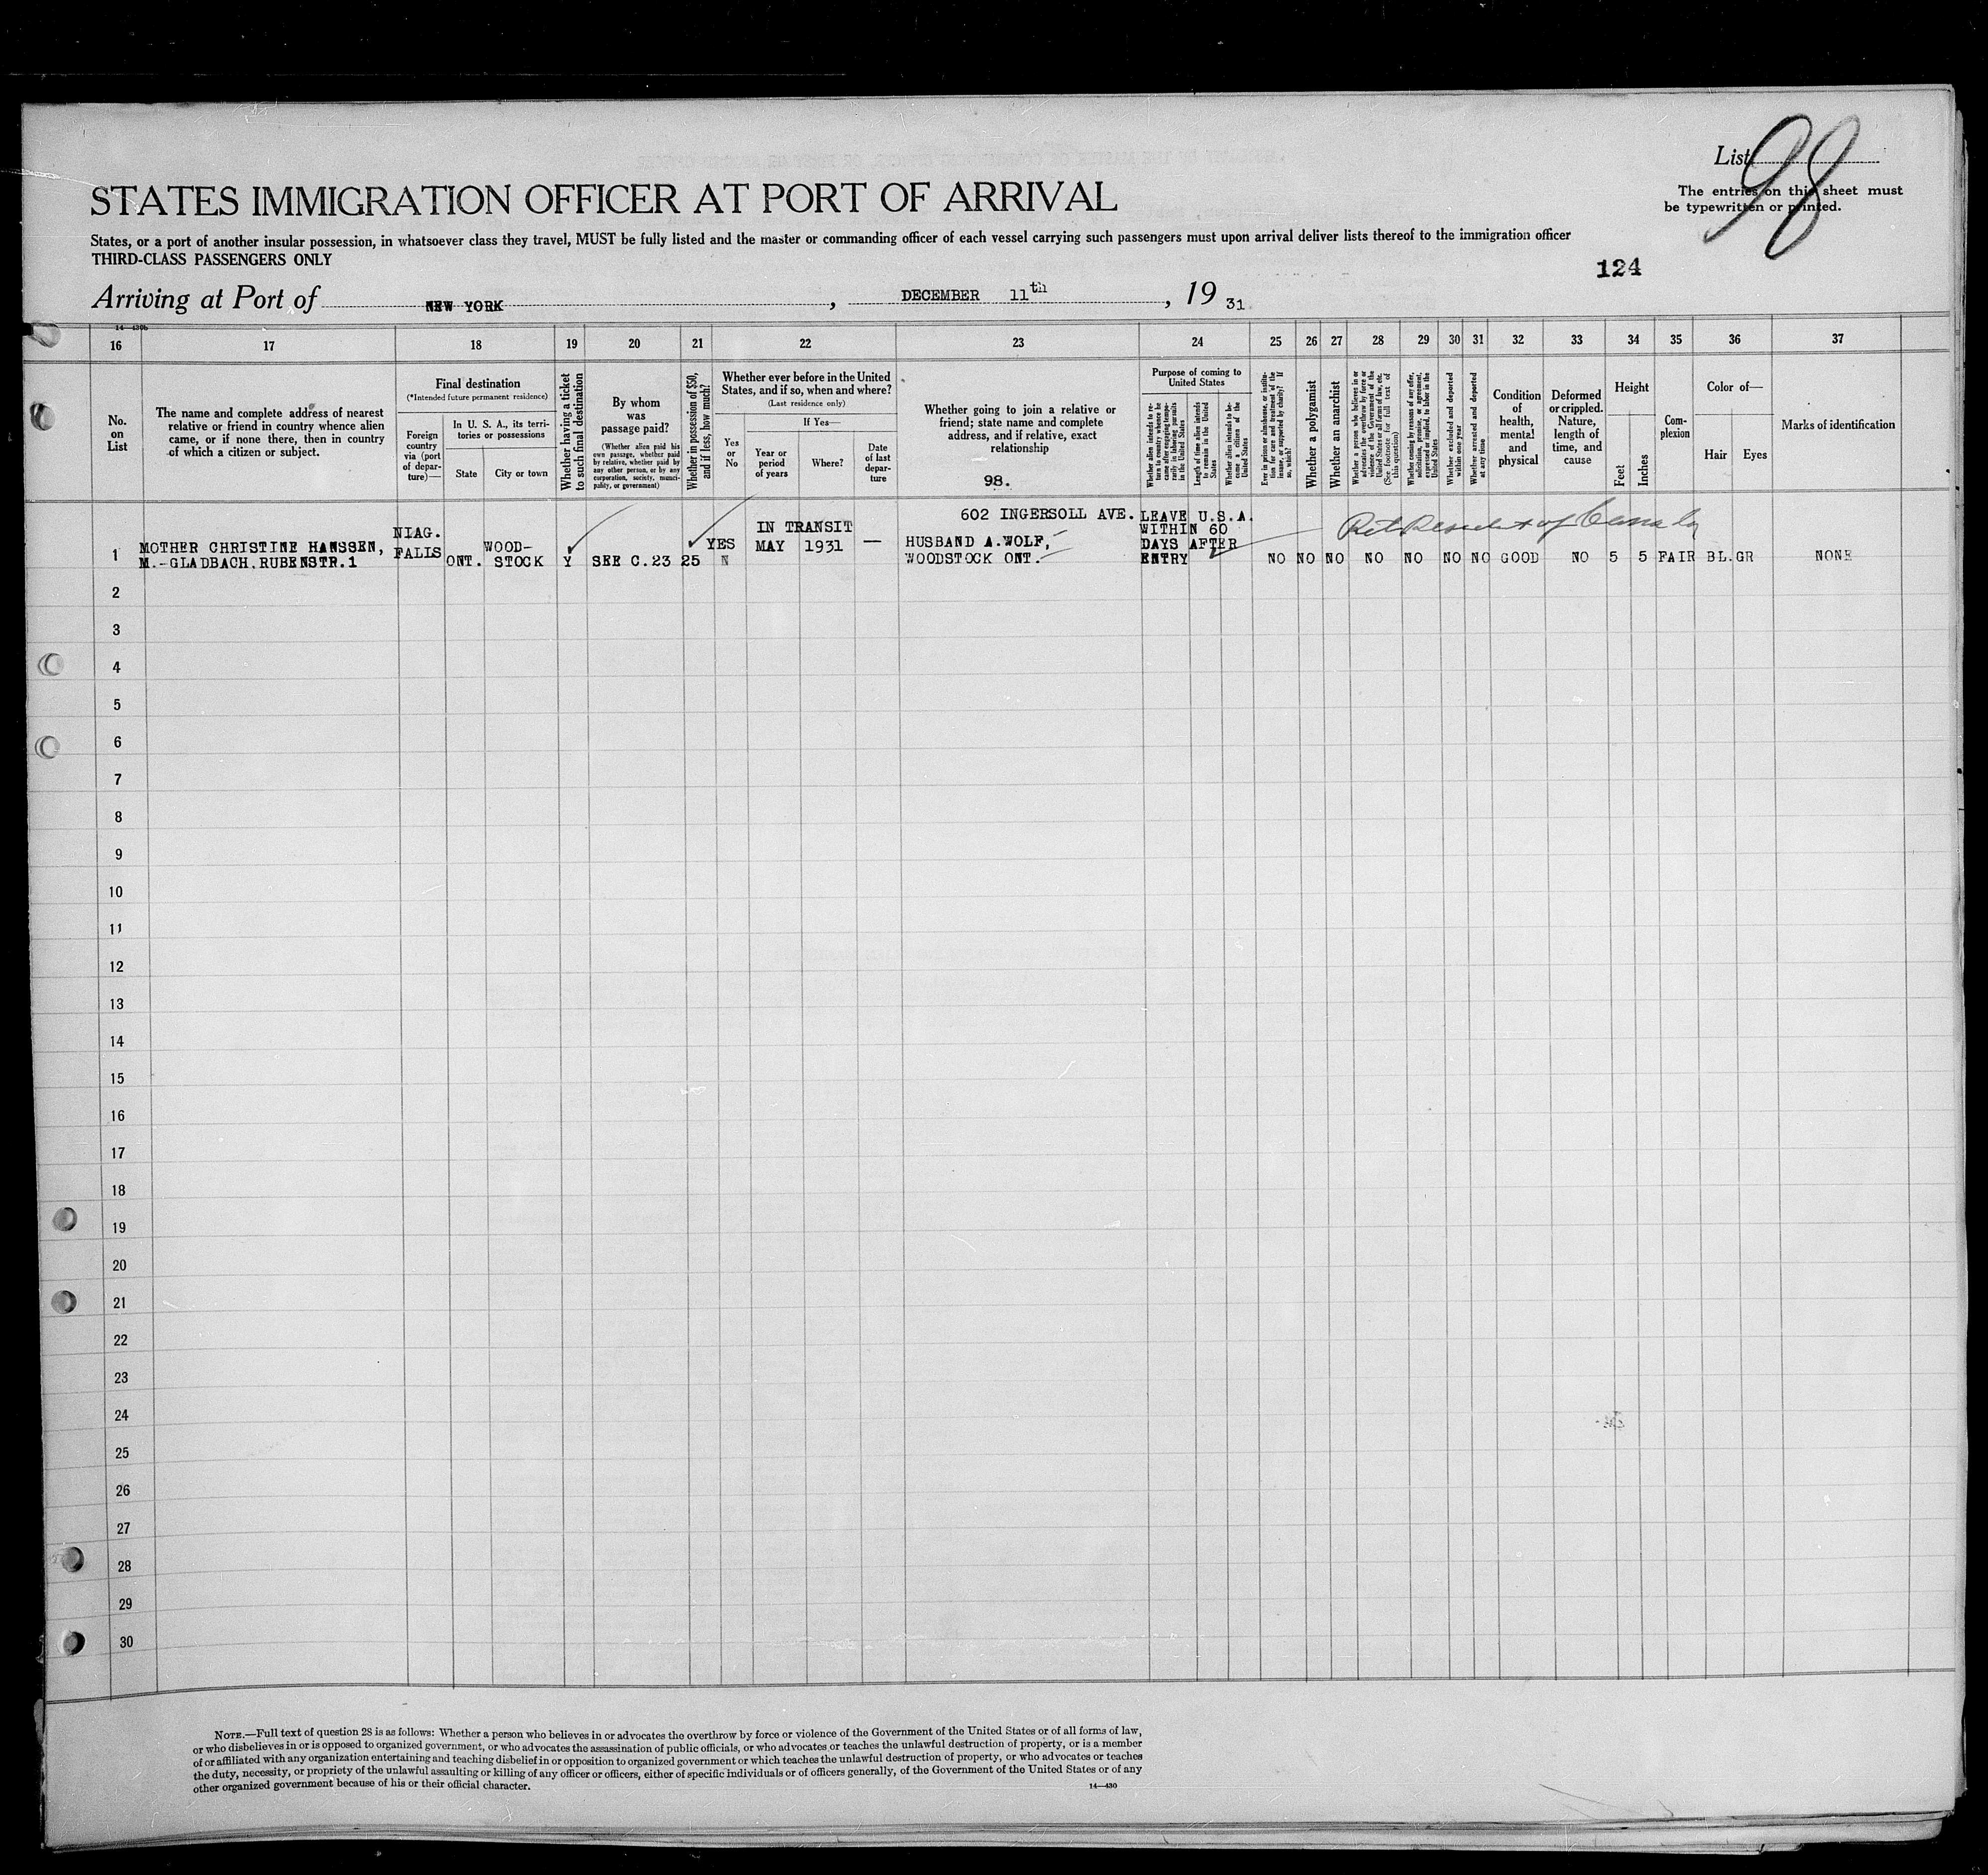 List 98
The entries on this sheet must
be typewritten or printed.
STATES IMMIGRATION OFFICER AT PORT OF ARRIVAL
States, or a port of another insular possession, in whatsoever class they travel, MUST be fully listed and the master or commanding officer of each vessel carrying such passengers must upon arrival deliver lists thereof to the immigration officer
THIRD-CLASS PASSENGERS ONLY
124
Arriving at Port of NEW YORK, DECEMBER 11th, 19 31
14-430b
16 17 18 19 20 21 22 23 24 25 26 27 28 29 30 31 32 33 34 35 36 37
No.
on
List
The name and complete address of nearest
relative or friend in country whence alien
came, or if none there, then in country
of which a citizen or subject.
Final destination
(*Intended future permanent residence)
Foreign
country
via (port
of depar-
ture)—
In U. S. A., its terri-
tories or possessions
State
City or town
Whether having a ticket
to such final destination
By whom
was
passage paid?
(Whether alien paid his
own passage, whether paid
by relative, whether paid by
any other person, or by any
corporation, society, munici-
pality, or government)
Whether in possession of $50,
and if less, how much?
Whether ever before in the United
States, and if so, when and where?
(Last residence only)
Yes
or
No
If Yes—
Year or
period
of years
Where?
Date
of last
depar-
ture
Whether going to join a relative or
friend; state name and complete
address, and if relative, exact
relationship
98.
Purpose of coming to
United States
Whether alien intends to re-
turn to country whence he
came after engaging tempo-
rarily in laboring pursuits
in the United States
Length of time alien intends
to remain in the United
States
Whether alien intends to be-
come a citizen of the
United States
Ever in prison or almshouse, or institu-
tion for care and treatment of the
insane, or supported by charity? If
so, which?
Whether a polygamist
Whether an anarchist
Whether a person who believes in or
advocates the overthrow by force or
violence of the Government of the
United States or all forms of law, etc.
(See footnote for full text of
this question)
Whether coming by reasons of any offer,
solicitation, promise, or agreement,
expressed or implied, to labor in the
United States
Whether excluded and deported
within one year
Whether arrested and deported
at any time
Condition
of
health,
mental
and
physical
Deformed
or crippled.
Nature,
length of
time, and
cause
Height
Feet
Inches
Com-
plexion
Color of—
Hair
Eyes
Marks of identification
1
MOTHER CHRISTINE HANSSEN,
M.-GLADBACH, RUBENSTR.1
NIAG.
FALLS
ONT.
WOOD-
STOCK
Y
SEE C.23
25
YES
N
IN TRANSIT
MAY 1931 —
602 INGERSOLL AVE.
HUSBAND A.WOLF,
WOODSTOCK ONT.
LEAVE U.S.A.
WITHIN 60
DAYS AFTER
ENTRY
Ret. Resident of Canada
NO NO NO NO NO NO NO GOOD NO 5 5 FAIR BL. GR NONE
2
3
4
5
6
7
8
9
10
11
12
13
14
15
16
17
18
19
20
21
22
23
24
25
26
27
28
29
30
NOTE.—Full text of question 28 is as follows: Whether a person who believes in or advocates the overthrow by force or violence of the Government of the United States or of all forms of law,
or who disbelieves in or is opposed to organized government, or who advocates the assassination of public officials, or who advocates or teaches the unlawful destruction of property, or is a member
of or affiliated with any organization entertaining and teaching disbelief in or opposition to organized government or which teaches the unlawful destruction of property, or who advocates or teaches
the duty, necessity, or propriety of the unlawful assaulting or killing of any officer or officers, either of specific individuals or of officers generally, of the Government of the United States or of any
other organized government because of his or their official character.
14—430